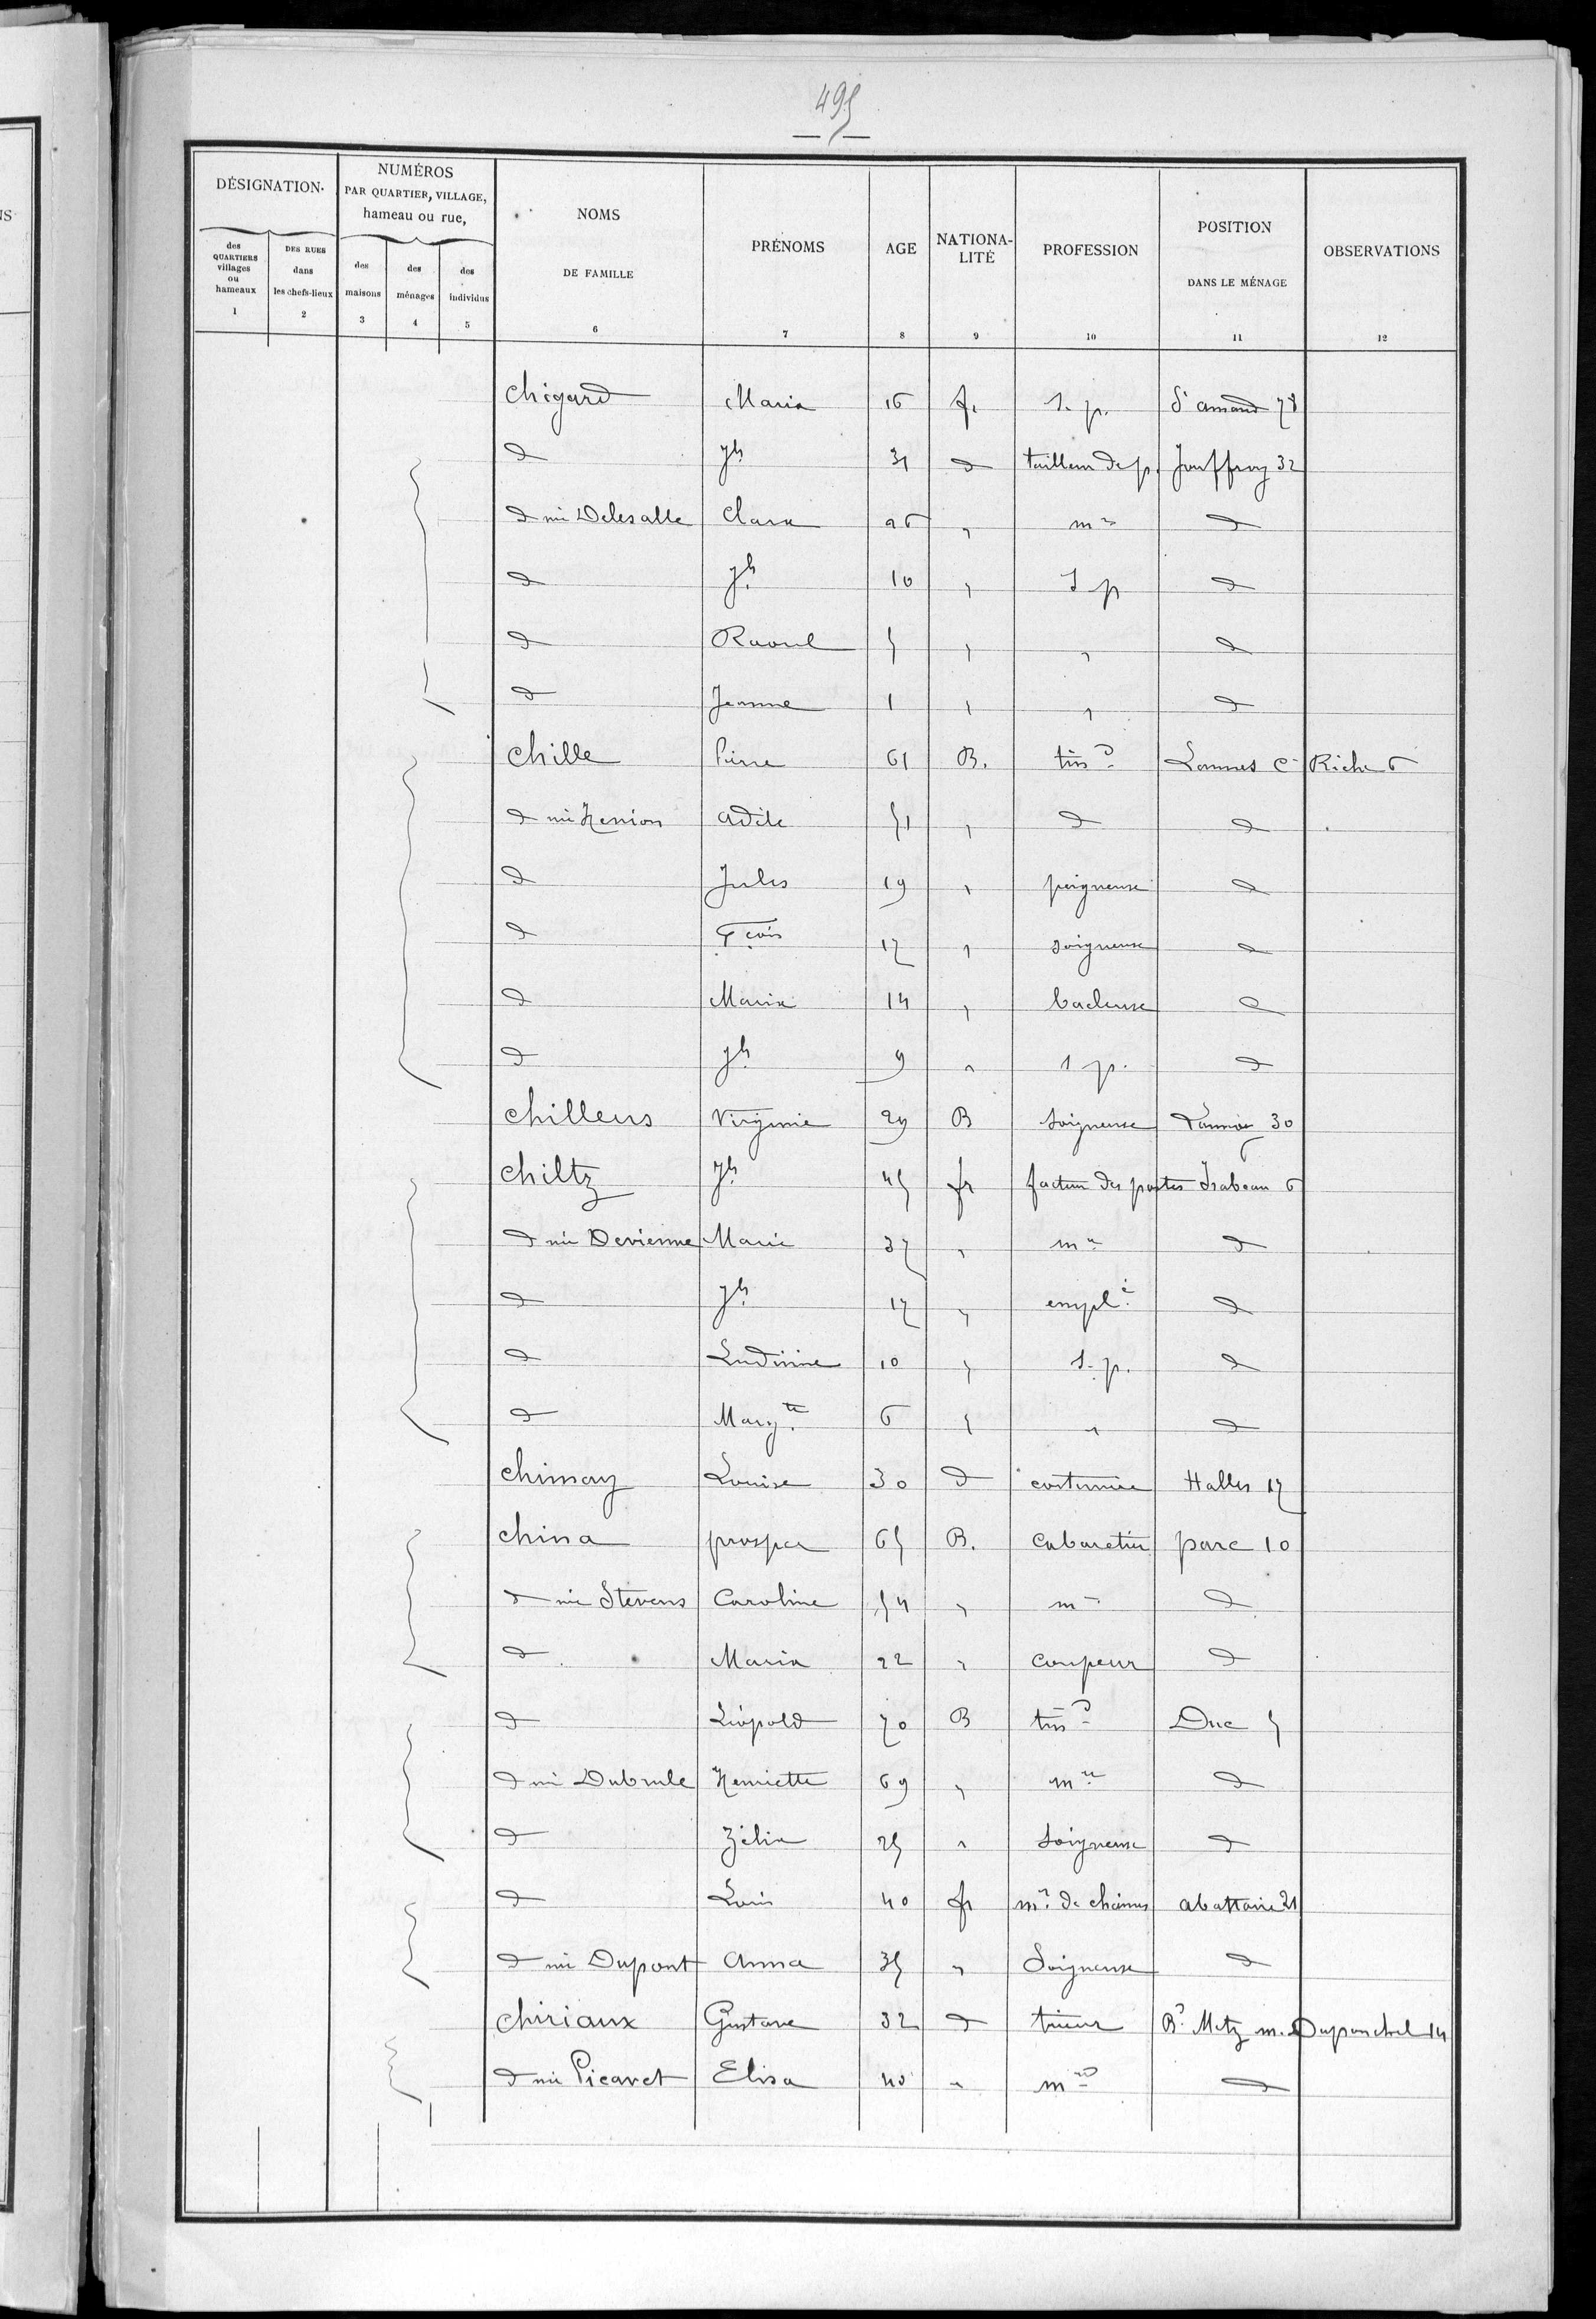 495
DÉSIGNATION
NUMÉROS PAR QUARTIER, VILLAGE, hameau ou rue,
NOMS DE FAMILLE
PRÉNOMS
AGE
NATIONA-LITÉ
PROFESSION
POSITION DANS LE MÉNAGE
OBSERVATIONS
des QUARTIERS villages ou hameaux
DES RUES dans les chefs-lieux
des maisons
des ménages
des individus
1 2 3 4 5 6 7 8 9 10 11 12
Chigard Maria 16 f. s. p. St amand 78
d Jh 31 d tailleur de p. Jouffroy 32
d née Delesalle Clara 26 " mre d
d Jh 10 " s p d
d Raoul 5 " " d
d Jeanne 1 " " d
Chille Pierre 61 B. tisd Lannes C Riche 6
d née Henion Adèle 51 " d d
d Jules 19 " peigneuse d
d Fçois 17 " soigneuse d
d Maria 14 " bacleuse d
d Jh 9 " s p. d
Chillens Virginie 29 B Soigneuse Lannoy 30
Chiltz Jh 45 fr facteur des postes Isabeau 6
d née Devienne Marie 37 " mre d
d Jh 17 " emplé d
d Ludivine 10 " s. p. d
d Margte 6 " " d
Chimay Louise 30 d costumière Halles 17
China prosper 65 B. Cabaretier parc 10
d née Stevens Caroline 54 " m d
d Maria 22 " coupeur d
d Léopold 70 B tisd Duc 5
d née Dubrule Henriette 69 " mre d
d Zélia 25 " Soigneuse d
d Louis 40 fr md de chaines abattoir 21
d née Dupont Anna 35 " Soigneuse d
Chiriaux Gustave 32 d trieur Bd Metz m. Duponchel 14
d née Picavet Elisa 40 " mre d